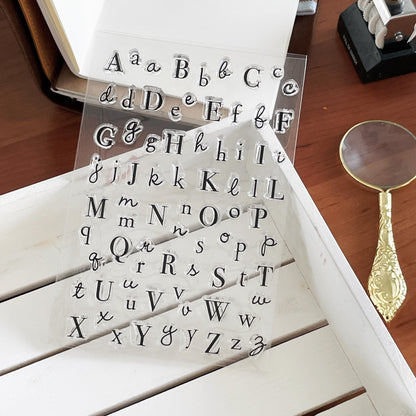 A a a B b b C c c
d d D e e E f f F
G g g H h h I i i
j j J k k K l l L
M m m N n n O o o P
q q Q r r R s s S t T p p
t U u u V v v W w w
X x x Y y y Z z z